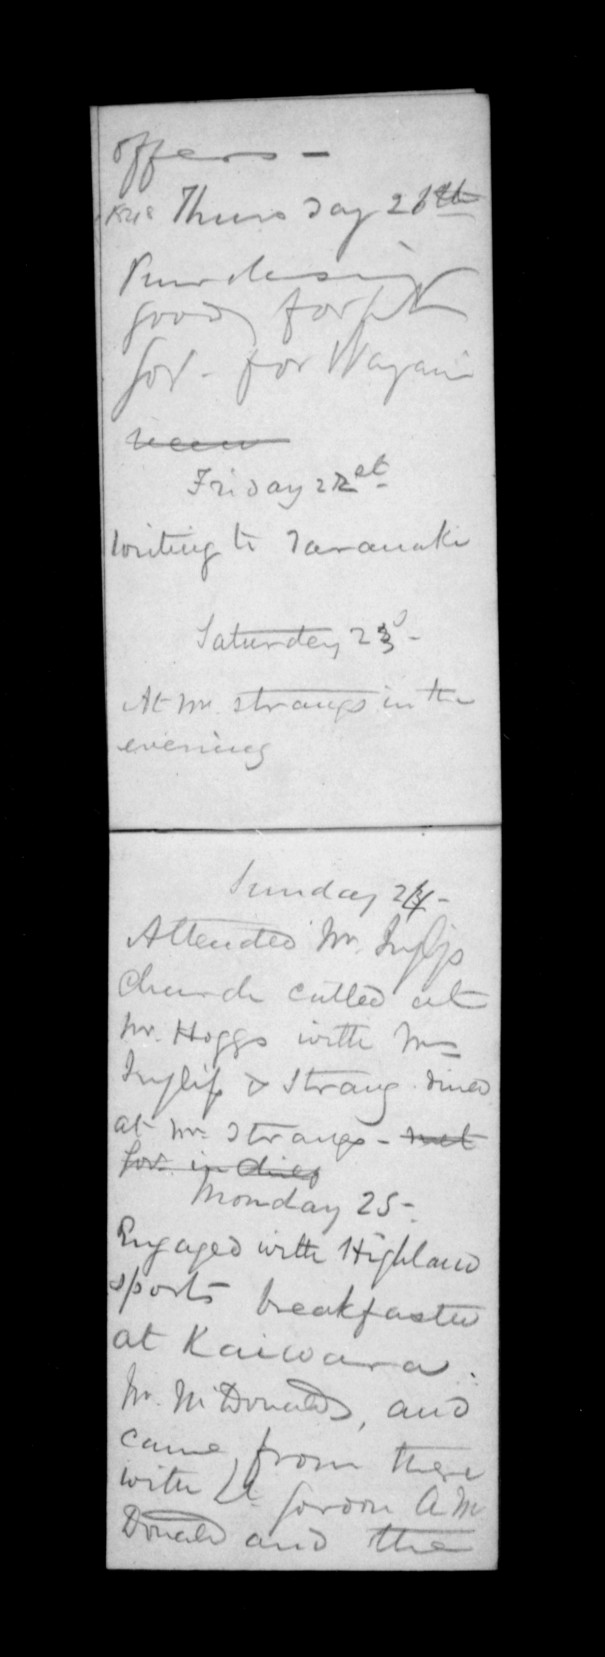 offers -
1848 Thursday 21th
Purchasing
goods for Lt
Gov - for Wayau
Friday 22st
Writing to Taranaki
Saturday 23d -
At Mr. Strangs in the
evening
Sunday 24 -
Attended Mr. Inglis
Church called at
Mr. Hoggs with Mrs
Inglis & Strang. dined
at Mr. Strangs - met
Gov. in Chief
Monday 25 -
Engaged with Highland
sports breakfasted
at Kaiwara.
Mr. McDonalds, and
came from there
with Lt Gordon A Mc
Donald and the